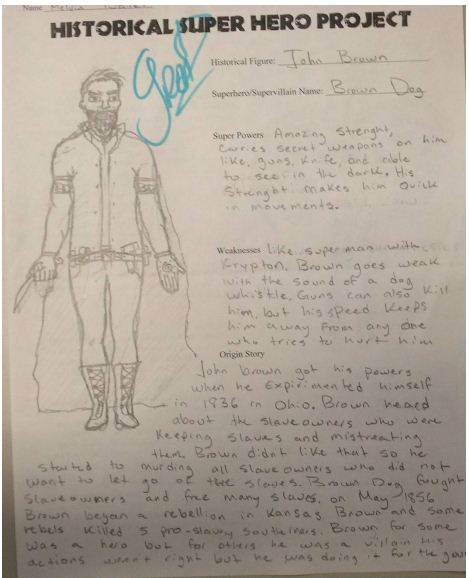 Name Melvia
HISTORICAL SUPER HERO PROJECT
Great
Historical Figure: John Brown
Superhero/Supervillain Name: Brown Dog
Super Powers Amazing Strenght,
Carries secret weapons on him
like, guns, Knife, and able
to see in the dark. His
Strenght makes him quick
in movements.
Weaknesses Like superman with
Krypton. Brown goes weak
with the sound of a dog
whistle. Guns can also kill
him, but his speed keeps
him away from any one
who tries to hurt him
Origin Story
John brown got his powers
when he Expirimented himself
in 1836 in Ohio. Brown heard
about the slaveowners who were
Keeping slaves and mistreating
them. Brown didnt like that so he
started to murding all slaveowners who did not
want to let go of the slaves. Brown Dog fought
slaveowners and free many slaves. on May 1856
Brown began a rebellion in Kansas. Brown and some
rebels killed 5 pro-slavry southerners. Brown for some
was a hero but for others he was a villain His
actions wern't right but he was doing it for the good